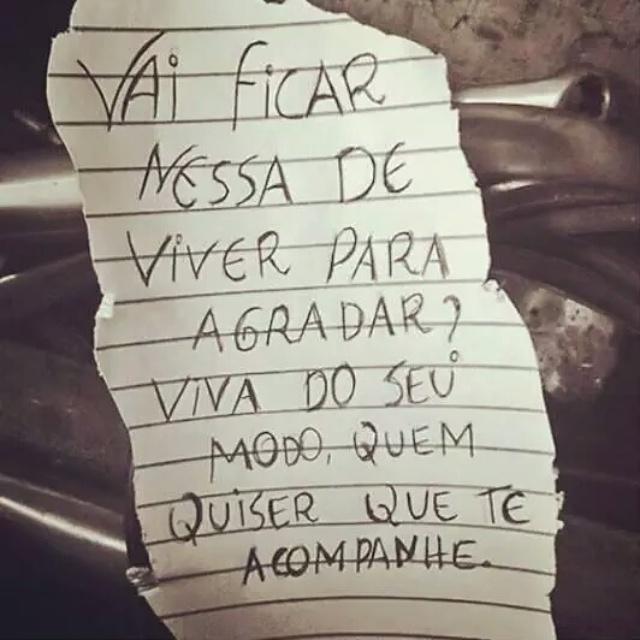 VAi FiCAR
NESSA DE
ViVER PARA
AGRADAR?
ViVA DO SEU
MODO, QUEM
QUiSER QUE TE
ACOMPANHE.